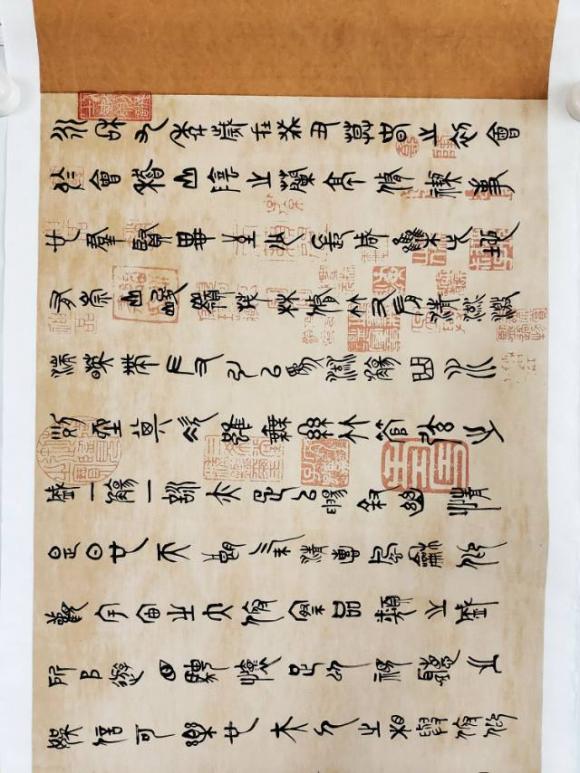 永和九年歲在癸丑暮春之初會
於會稽山陰之蘭亭脩禊事
也羣賢畢至少長咸集此地
有崇山峻領茂林脩竹又有清流激
湍暎帶左右引以為流觴曲水
列坐其次雖無絲竹管弦之
盛一觴一詠亦足以暢敘幽情
是日也天朗氣清惠風龢暢仰
觀宇宙之大俯察品類之盛
所以遊目騁懷足以極視聽之
娛信可樂也夫人之相與俯仰